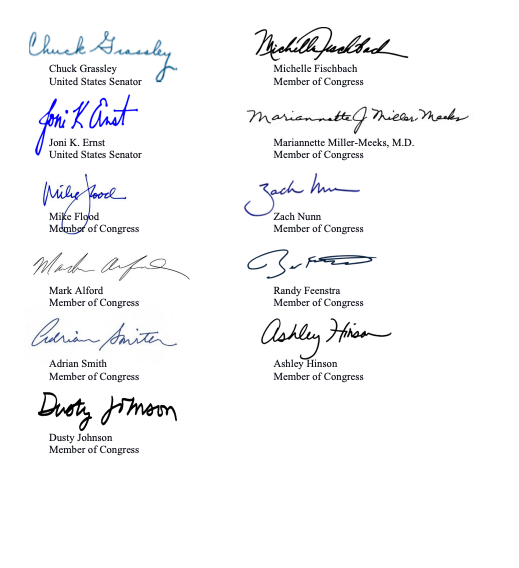 Chuck Grassley
Chuck Grassley
United States Senator
Michelle Fischbach
Michelle Fischbach
Member of Congress
Joni K Ernst
Joni K. Ernst
United States Senator
Mariannette J Miller-Meeks
Mariannette Miller-Meeks, M.D.
Member of Congress
Mike Flood
Mike Flood
Member of Congress
Zach Nunn
Zach Nunn
Member of Congress
Mark Alford
Mark Alford
Member of Congress
Randy Feenstra
Member of Congress
Adrian Smith
Adrian Smith
Member of Congress
Ashley Hinson
Ashley Hinson
Member of Congress
Dusty Johnson
Dusty Johnson
Member of Congress